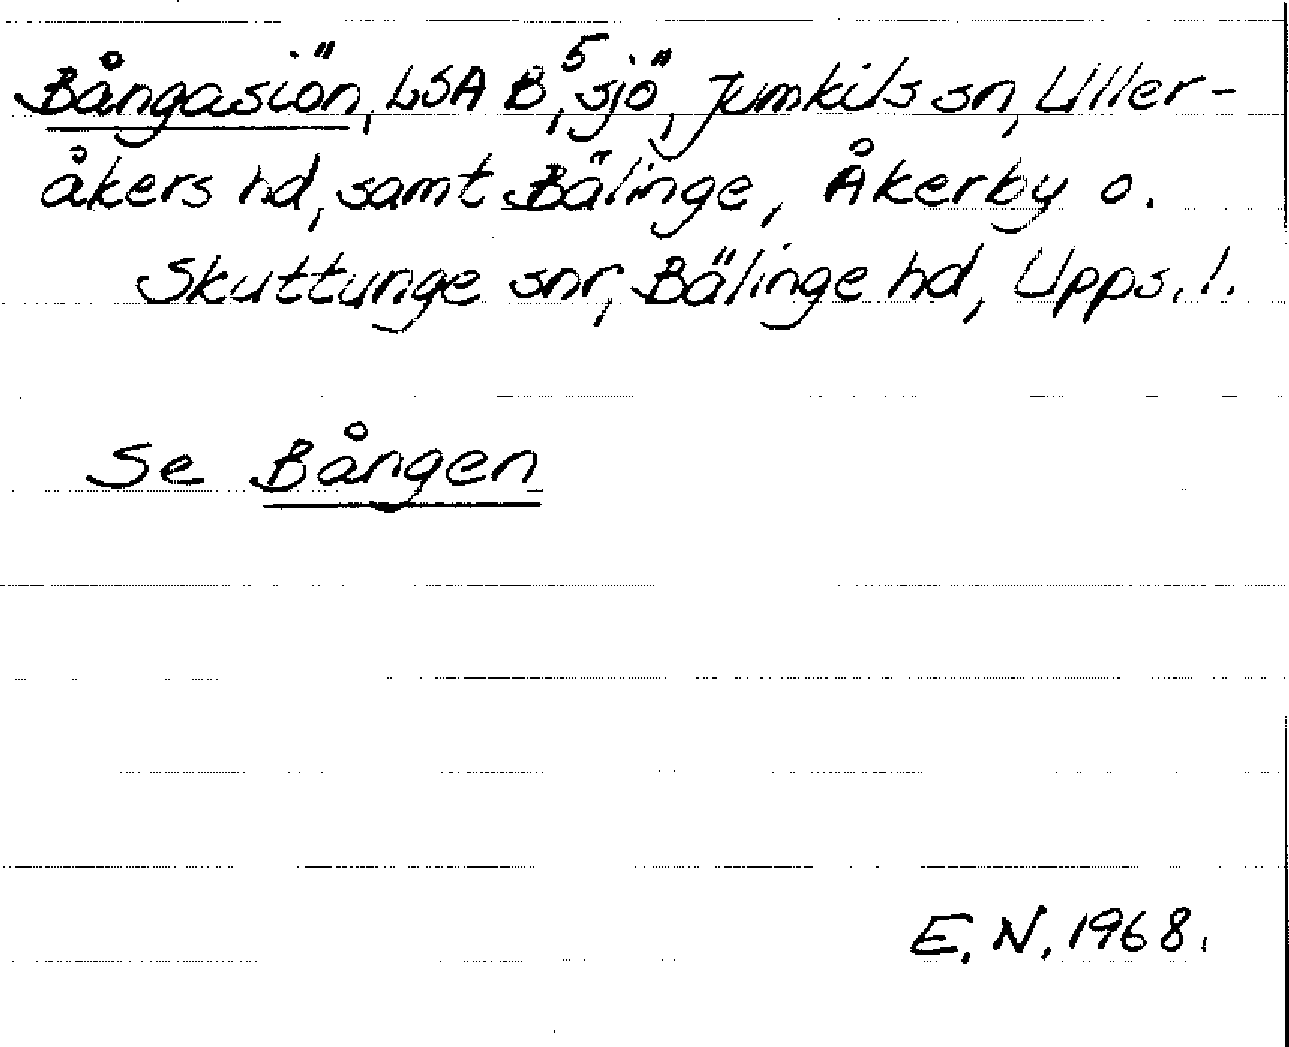 Bångasiön, LSA B⁵, sjö, Jumkils sn, Uller-
åkers hd, samt Bälinge, Åkerby o.
Skuttunge snr, Bälinge hd, Upps. l.
Se Bången
E. N. 1968.